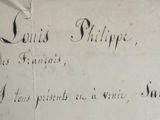 Louis Philippe,
des Français,
A tous présents et à venir, Sa